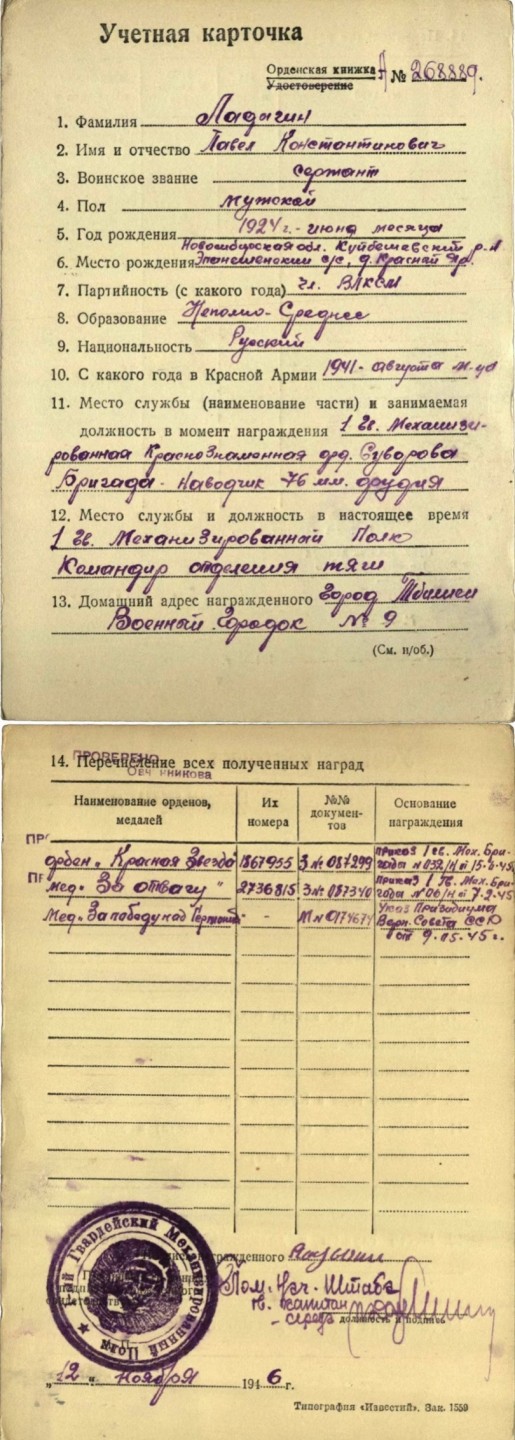 Учетная карточка
Орденская книжка А № 268889.
Удостоверение
1. Фамилия Ладагин
2. Имя и отчество Павел Константинович
3. Воинское звание сержант
4. Пол мужской
5. Год рождения 1924 г. - июня месяца
Новосибирская обл. Куйбышевский р-н
6. Место рождения с/с, д. Красный Яр.
7. Партийность (с какого года) чл. ВЛКСМ
8. Образование Неполно-Среднее
9. Национальность Русский
10. С какого года в Красной Армии 1941 - августа м-ца
11. Место службы (наименование части) и занимаемая
должность в момент награждения 1 Гв. Механизи-
рованная Краснознаменная орд. Суворова
Бригада - наводчик 76 мм. орудия
12. Место службы и должность в настоящее время
1 Гв. Механизированный Полк
Командир отделения тяги
13. Домашний адрес награжденного Город Тбилиси
Военный Городок № 9
(См. н/об.)
ПРОВЕРЕНО
14. Перечисление всех полученных наград
Овчинникова
Наименование орденов, медалей
Их номера
№№ документов
Основание награждения
ПР
орден „Красная Звезда" 1867955 З № 087299 приказ 1 гв. Мех. Бри-
гада № 032/н
ПР
мед „За отвагу" 2736815 З № 087340 приказ 1 Гв. Мех. Бри-
гада № 06/н 7-2-45
Мед „За победу над Германией - М № 0174674 Указ Президиума
Верх. Совета СССР
от 9.05.45 г.
Гвардейский Механизированный Полк
награжденного
Пом. Нач. Штаба
гв. капитан
должность и подпись
„12" Ноября 1946 г.
Типография «Известий». Зак. 1559